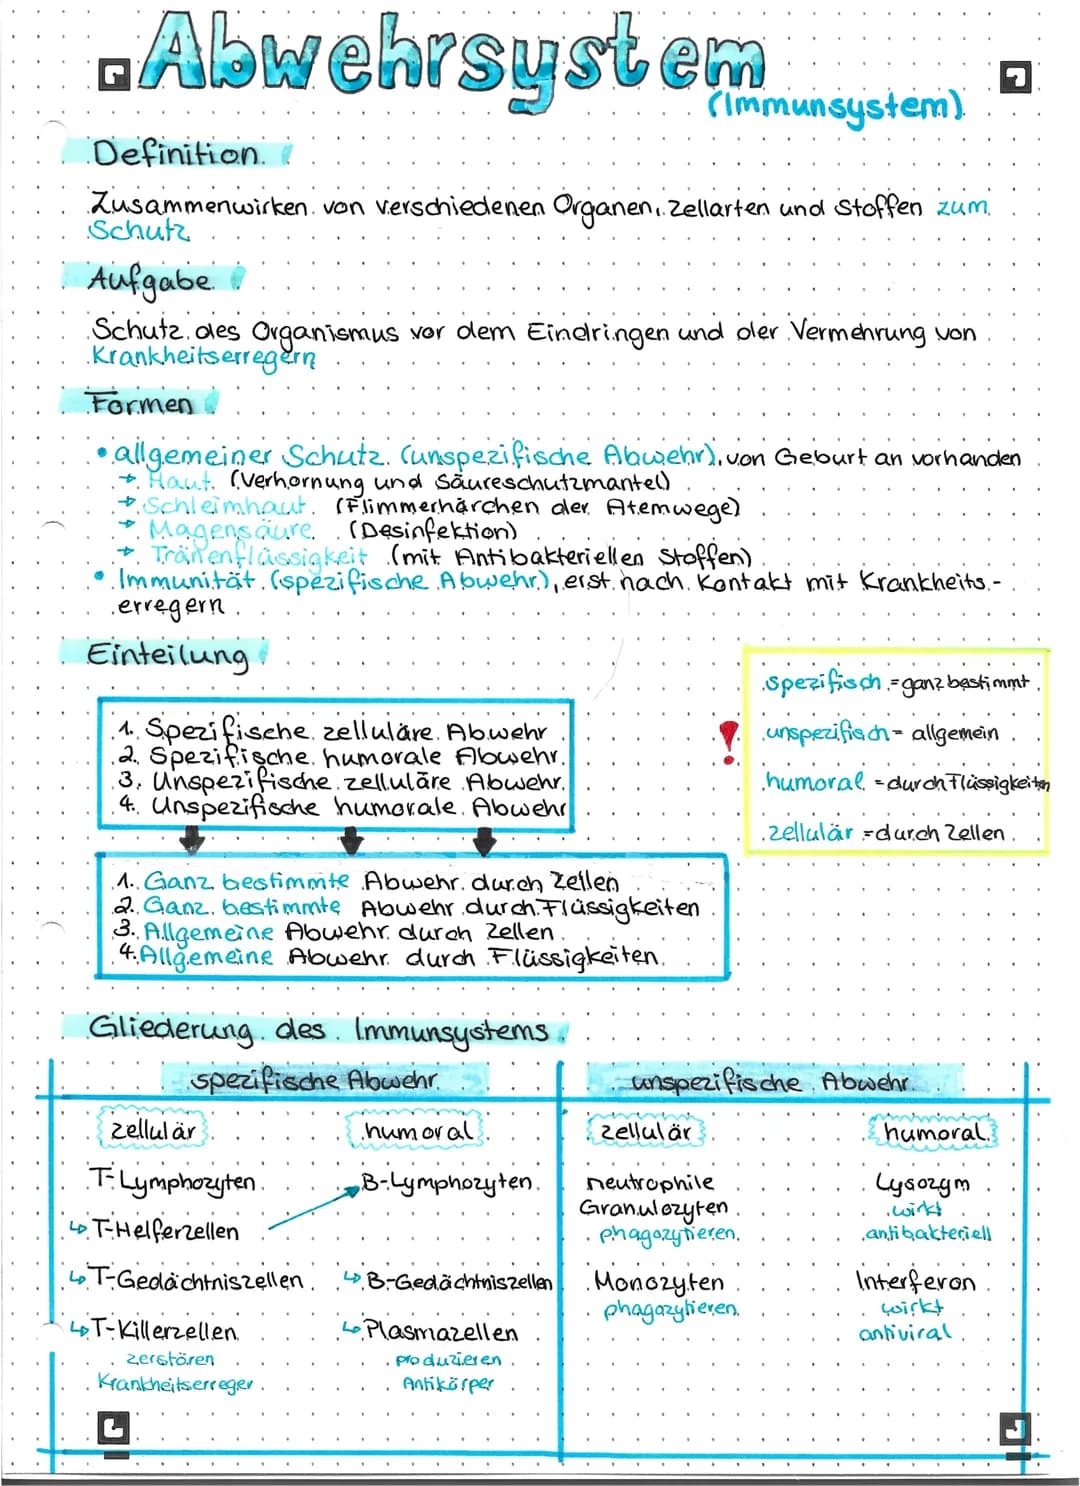 Abwehrsystem
(Immunsystem)
Definition
Zusammenwirken von verschiedenen Organen, Zellarten und Stoffen zum
Schutz
Aufgabe
Schutz des Organismus vor dem Eindringen und der Vermehrung von
Krankheitserregern
Formen
• allgemeiner Schutz (unspezifische Abwehr), von Geburt an vorhanden
→ Haut (Verhornung und Säureschutzmantel)
→ Schleimhaut (Flimmerhärchen der Atemwege)
→ Magensäure (Desinfektion)
→ Tränenflüssigkeit (mit Antibakteriellen Stoffen)
• Immunität (spezifische Abwehr), erst nach Kontakt mit Krankheits-
erregern
Einteilung
1. Spezifische zelluläre Abwehr
2. Spezifische humorale Abwehr
3. Unspezifische zelluläre Abwehr
4. Unspezifische humorale Abwehr
! spezifisch = ganz bestimmt
unspezifisch = allgemein
humoral = durch Flüssigkeiten
zellulär = durch Zellen
1. Ganz bestimmte Abwehr durch Zellen
2. Ganz bestimmte Abwehr durch Flüssigkeiten
3. Allgemeine Abwehr durch Zellen
4. Allgemeine Abwehr durch Flüssigkeiten
Gliederung des Immunsystems
spezifische Abwehr
zellulär
T-Lymphozyten
↳ T-Helferzellen
↳ T-Gedächtniszellen
↳ T-Killerzellen
zerstören
Krankheitserreger
humoral
B-Lymphozyten
↳ B-Gedächtniszellen
↳ Plasmazellen
produzieren
Antikörper
unspezifische Abwehr
zellulär
neutrophile
Granulozyten
phagozytieren
Monozyten
phagozytieren
humoral
Lysozym
wirkt
antibakteriell
Interferon
wirkt
antiviral